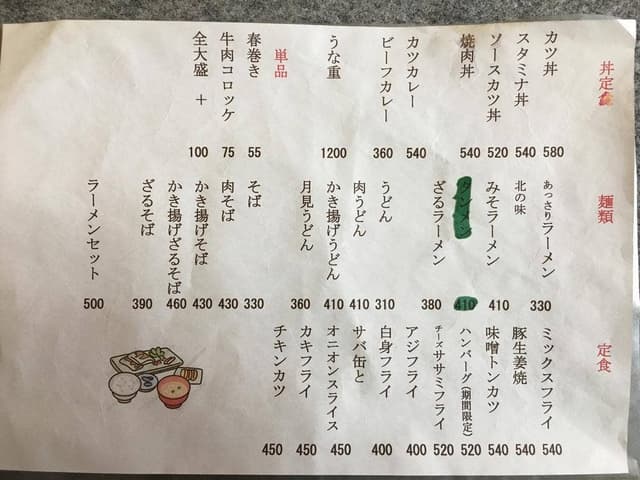 丼定食
カツ丼 580
スタミナ丼 540
ソースカツ丼 520
焼肉丼 540
カツカレー 540
ビーフカレー 360
うな重 1200
単品
春巻き 55
牛肉コロッケ 75
全大盛 + 100
麺類
あっさりラーメン 330
北の味
みそラーメン 410
タンメン 410
ざるラーメン 380
うどん 310
肉うどん 410
かき揚げうどん 410
月見うどん 360
そば 330
肉そば 430
かき揚げそば 430
かき揚げざるそば 460
ざるそば 390
ラーメンセット 500
定食
ミックスフライ 540
豚生姜焼 540
味噌トンカツ 540
ハンバーグ(期間限定) 520
チーズササミフライ 520
アジフライ 400
白身フライ 400
サバ缶と
オニオンスライス 450
カキフライ 450
チキンカツ 450